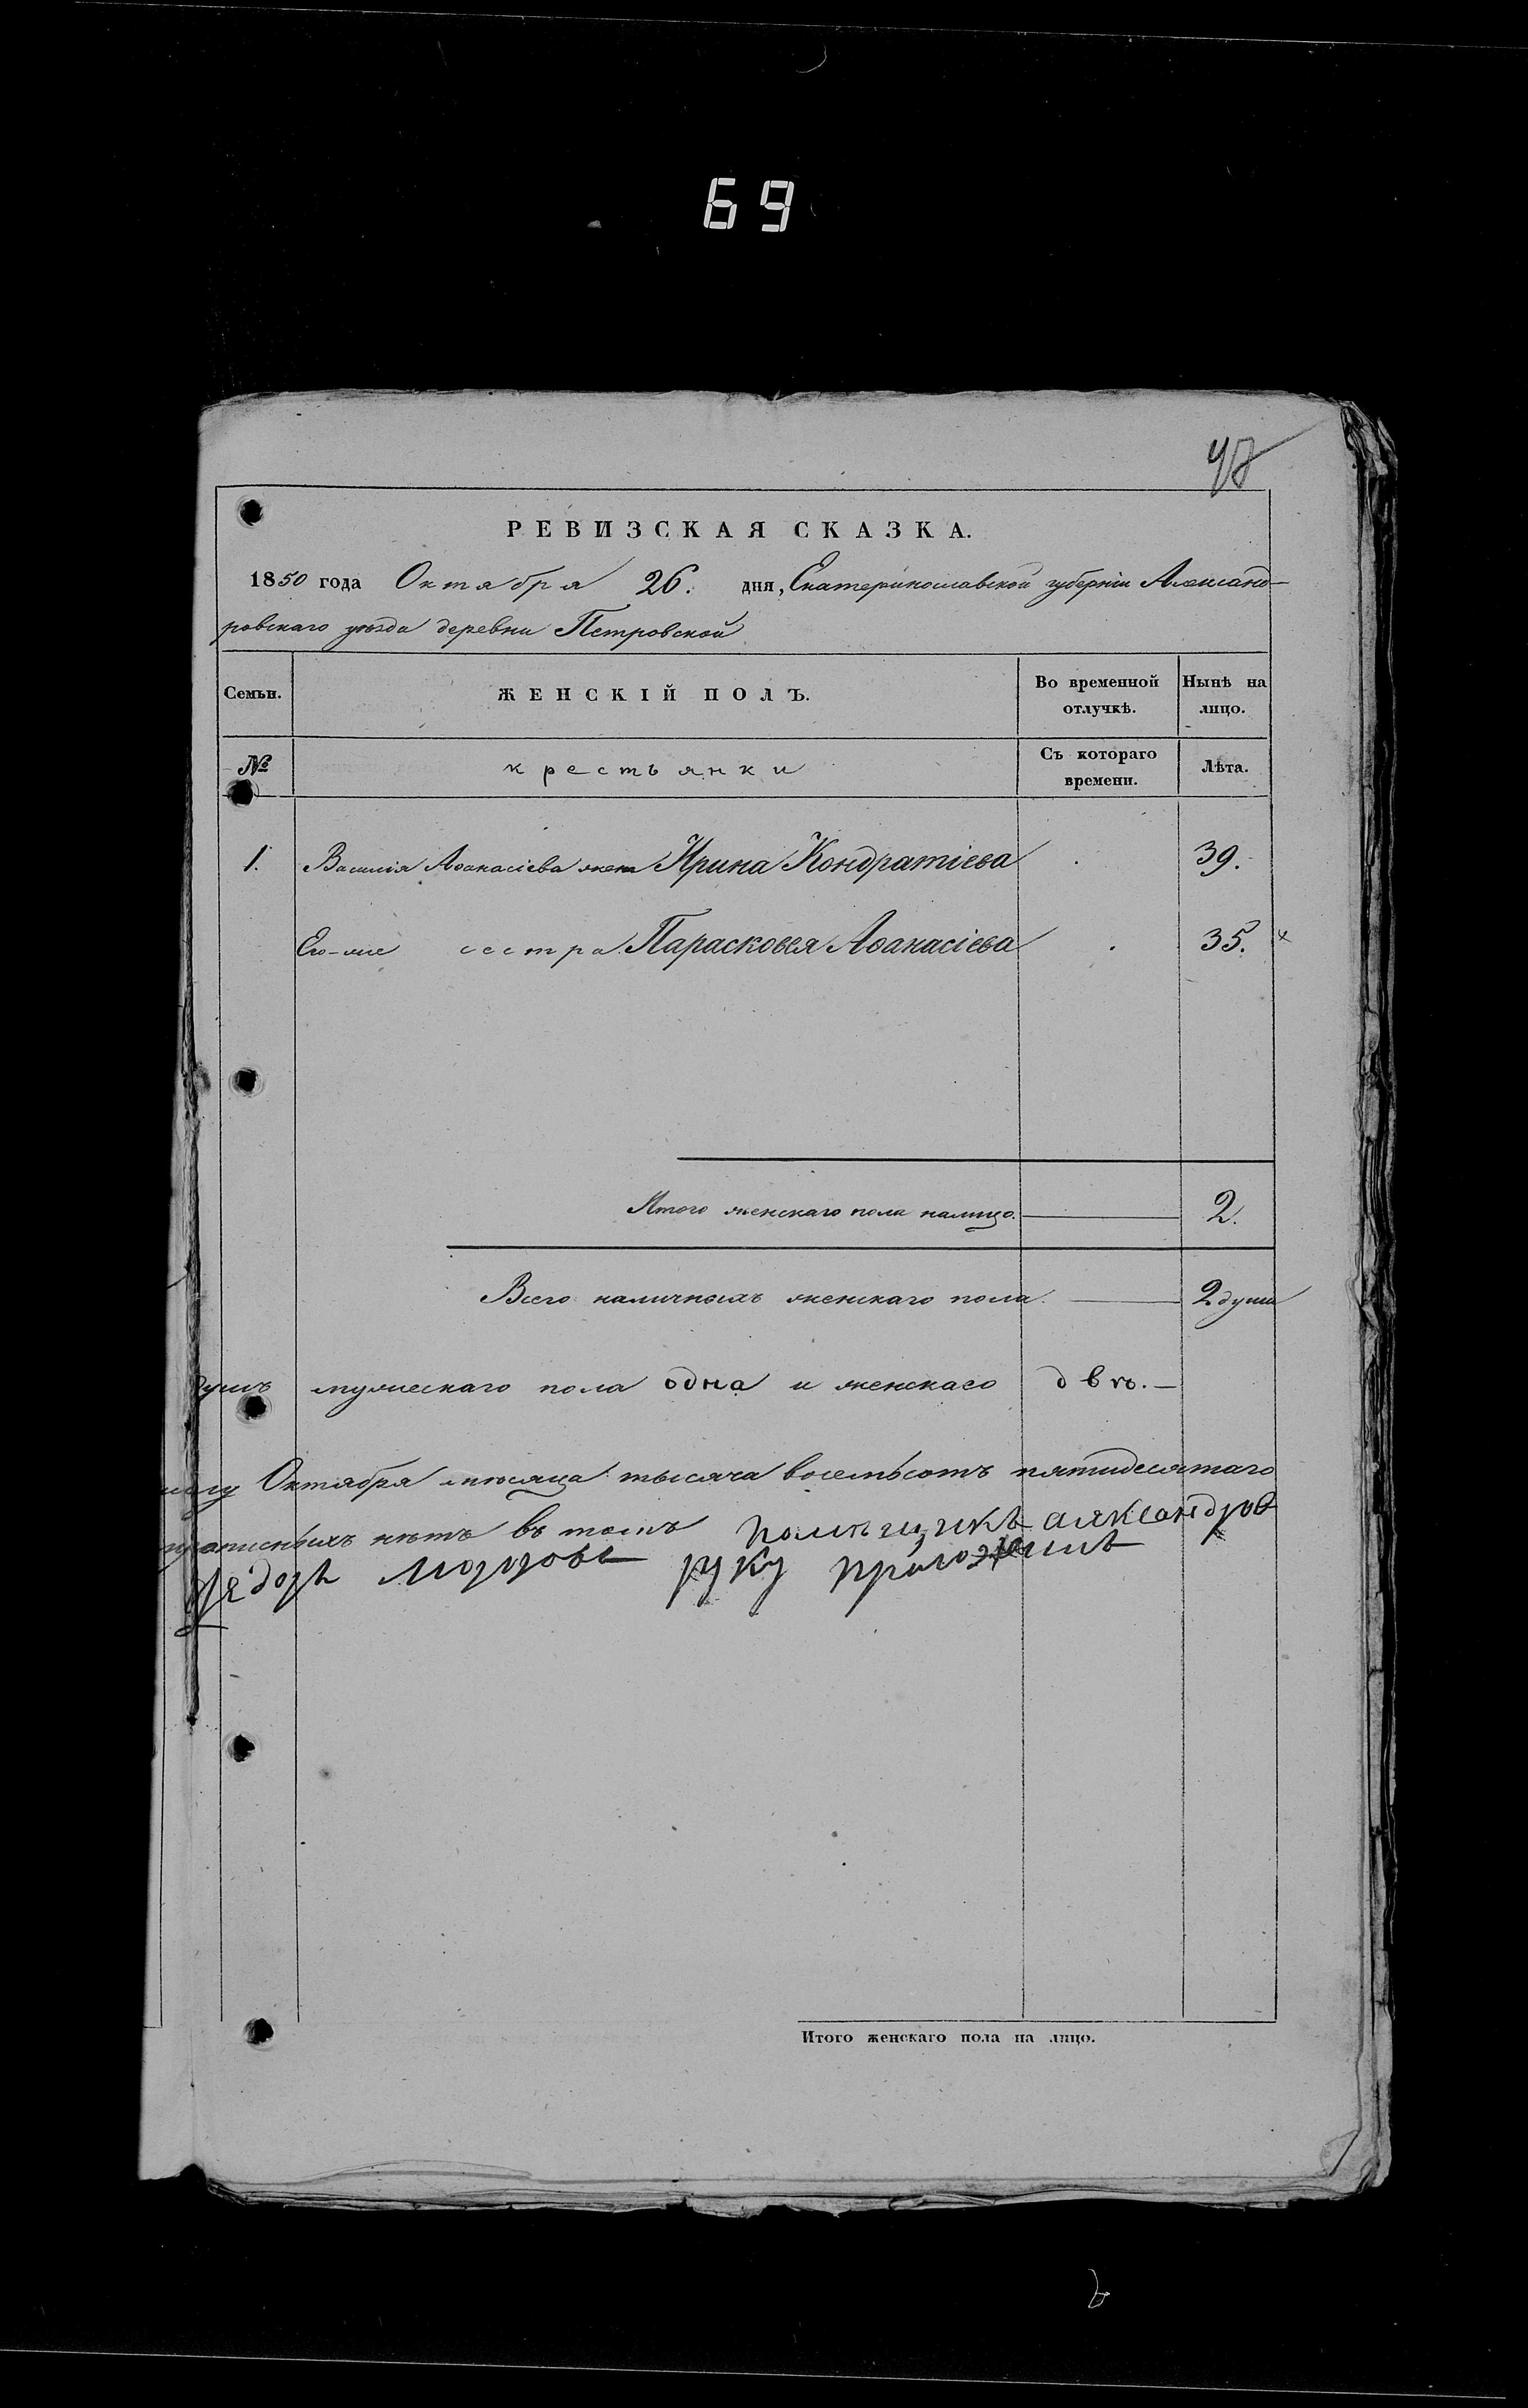 69
48
РЕВИЗСКАЯ СКАЗКА.
1850 года Октября 26. дня, Екатеринославской губерніи Александ-
ровскаго уѣзда деревни Петровской
Семьи. ЖЕНСКІЙ ПОЛЪ. Во временной отлучкѣ. Нынѣ на лицо.
№ крестьянки Съ котораго времени. Лѣта.
1. Василія Аѳанасіева жена Ирина Кондратіева 39.
Его-же сестра Парасковея Аѳанасіева 35. x
Итого женскаго пола налицо. 2.
Всего наличныхъ женскаго пола. 2 души
душъ мужескаго пола одна и женскаго двѣ.
Октября мѣсяца тысяча восемьсотъ пятидесятаго
прописныхъ нѣтъ въ томъ помѣщикъ аляксандров
руку приложилъ
Итого женскаго пола на лицо.